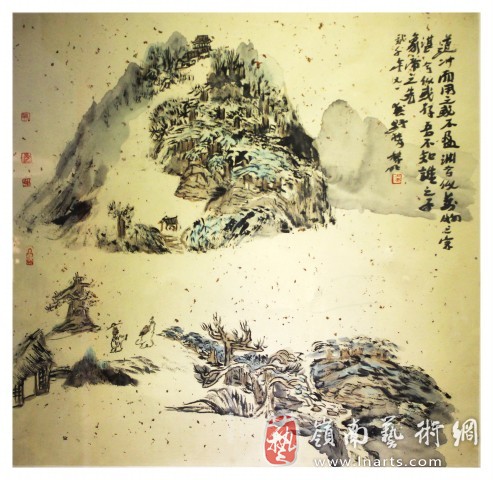 道冲而用之或不盈渊兮似萬物之宗
湛兮似或存吾不知誰之子
象帝之先
嶺南藝術網
www.lnarts.com